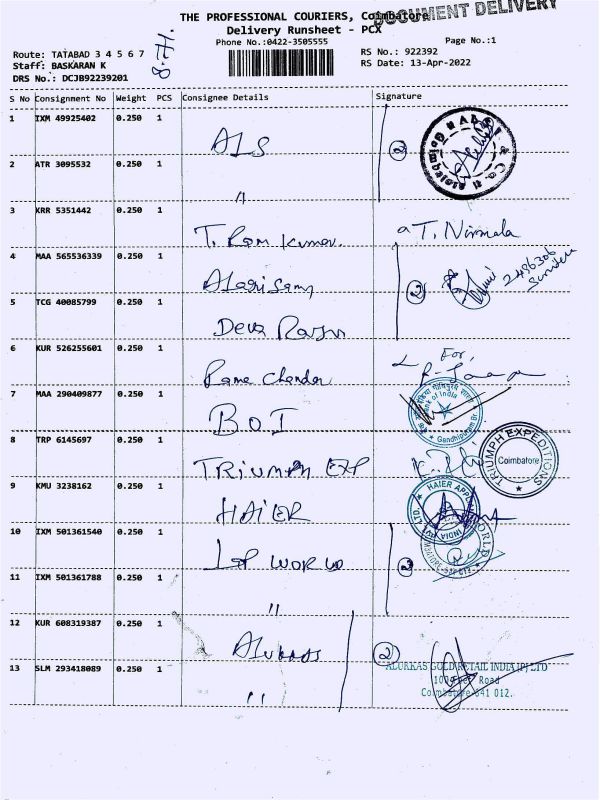 THE PROFESSIONAL COURIERS, Coimbatore
DOCUMENT DELIVERY
Delivery Runsheet - PCX
Phone No.:0422-3505555
Page No.:1
Route: TATABAD 3 4 5 6 7
RS No.: 922392
Staff: BASKARAN K
RS Date: 13-Apr-2022
DRS No.: DCJB92239201
S No Consignment No Weight PCS Consignee Details Signature
1 IXM 49925402 0.250 1
ALS
2
2 ATR 3095532 0.250 1
"
3 KRR 5351442 0.250 1
T. Ram Kumar.
T. Nirmala
4 MAA 565536339 0.250 1
Alagisamy
2
5 TCG 40085799 0.250 1
Deva Rajn
6 KUR 526255601 0.250 1
Rama Chander
For,
7 MAA 290409877 0.250 1
BOI
Bank of India
Gandhipuram Br
8 TRP 6145697 0.250 1
TRIUMPH EXP
TRIUMPH EXPEDITIONS
Coimbatore
9 KMU 3238162 0.250 1
HAIER
HAIER APPL
INDIA
10 IXM 501361540 0.250 1
LAP WORLD
2
11 IXM 501361788 0.250 1
"
12 KUR 608319387 0.250 1
Alukkas
2
13 SLM 293418089 0.250 1
"
ALURKAS GOLD RETAIL INDIA (P) LTD
100 Feet Road
Coimbatore-641 012.